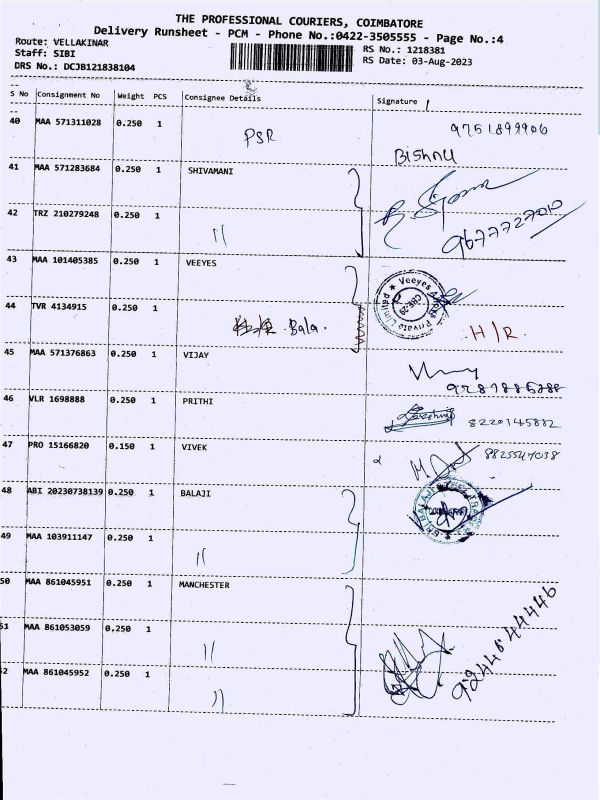 THE PROFESSIONAL COURIERS, COIMBATORE
Delivery Runsheet - PCM - Phone No.:0422-3505555 - Page No.:4
Route: VELLAKINAR
Staff: SIBI
DRS No.: DCJB121838104
RS No.: 1218381
RS Date: 03-Aug-2023
S No Consignment No Weight PCS Consignee Details Signature
40 MAA 571311028 0.250 1 PSR 9751899906
Bishnu
41 MAA 571283684 0.250 1 SHIVAMANI
42 TRZ 210279248 0.250 1 " 9677727010
43 MAA 101405385 0.250 1 VEEYES
Veeyes Private Limited
44 TVR 4134915 0.250 1 Bala. H/R
45 MAA 571376863 0.250 1 VIJAY
46 VLR 1698888 0.250 1 PRITHI 8220145882
47 PRO 15166820 0.150 1 VIVEK 8825547038
48 ABI 20230738139 0.250 1 BALAJI
49 MAA 103911147 0.250 1 "
50 MAA 861045951 0.250 1 MANCHESTER
51 MAA 861053059 0.250 1 "
52 MAA 861045952 0.250 1 "